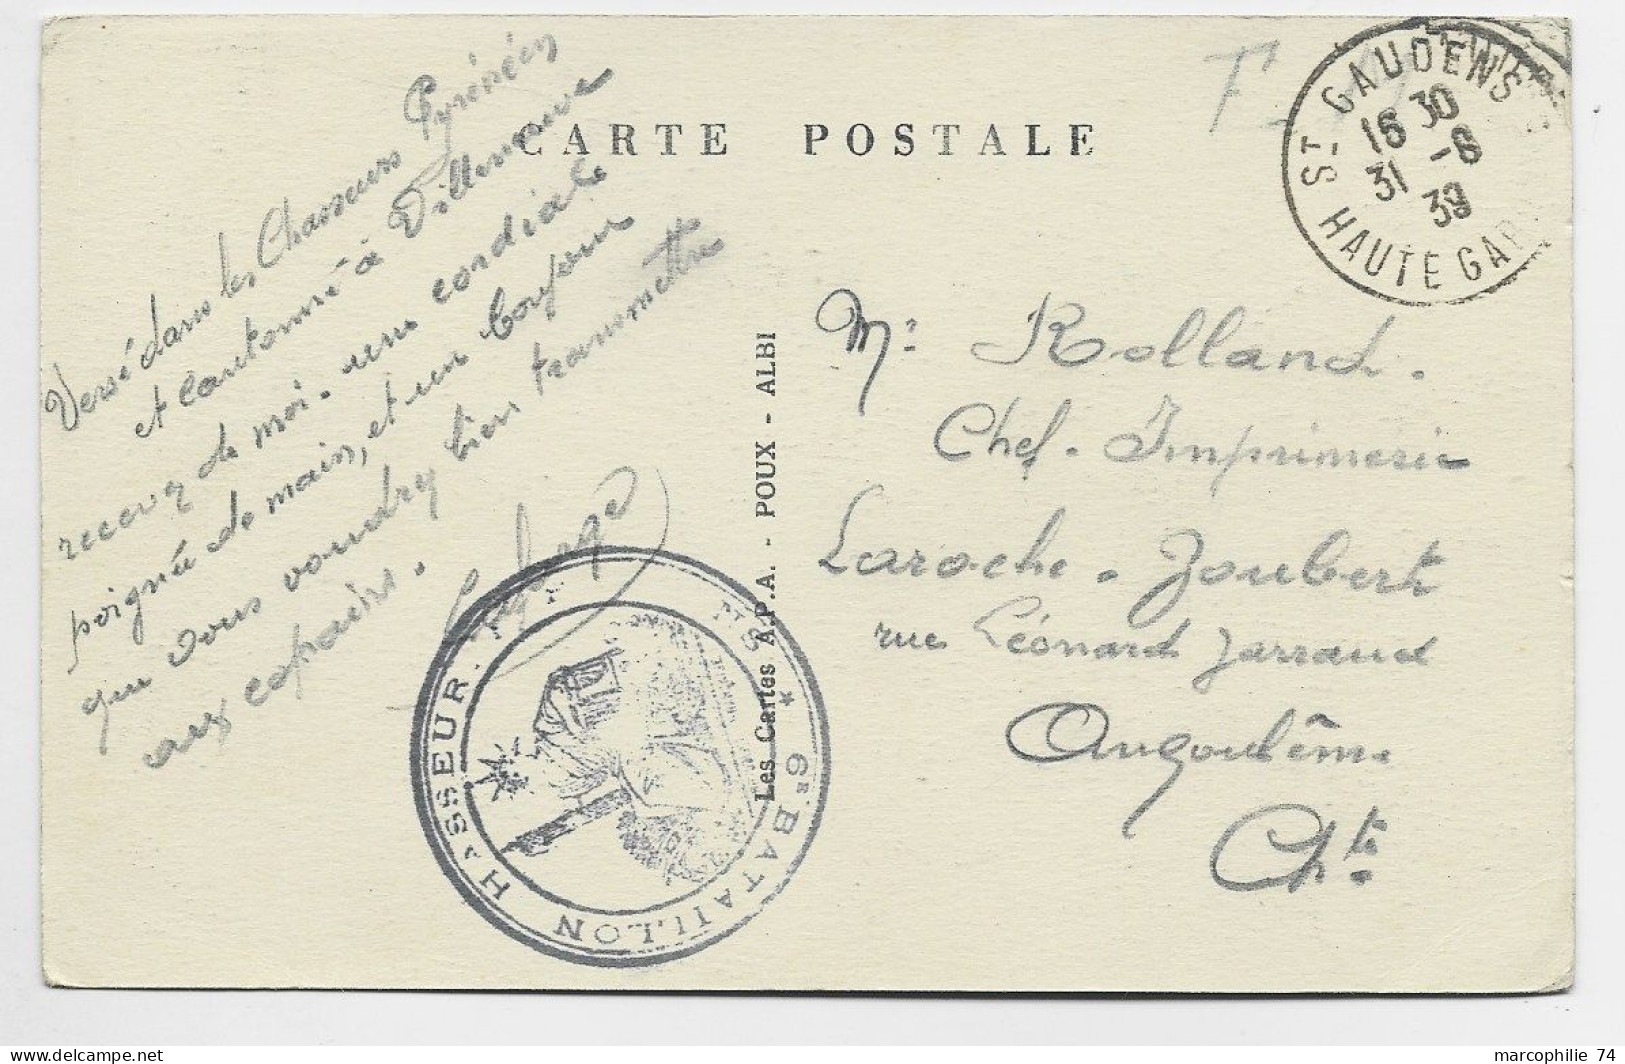 CARTE POSTALE
F.
ST GAUDENS
16 30
31 -8
39
HAUTE GAR
Versé dans les Chasseurs Pyrénéen
et cantonné à Villeneuve
recevez de moi. une cordiale
poignée de main, et un bonjour
que vous voudrez bien transmettre
aux copains.
Mr Rolland.
Chef. Imprimerie
Laroche. Joubert
rue Léonard Jarraud
Angoulême
Chte.
Les Cartes A.P.A. - POUX - ALBI
* 6E BATAILLON HASSEUR
marcophilie 74